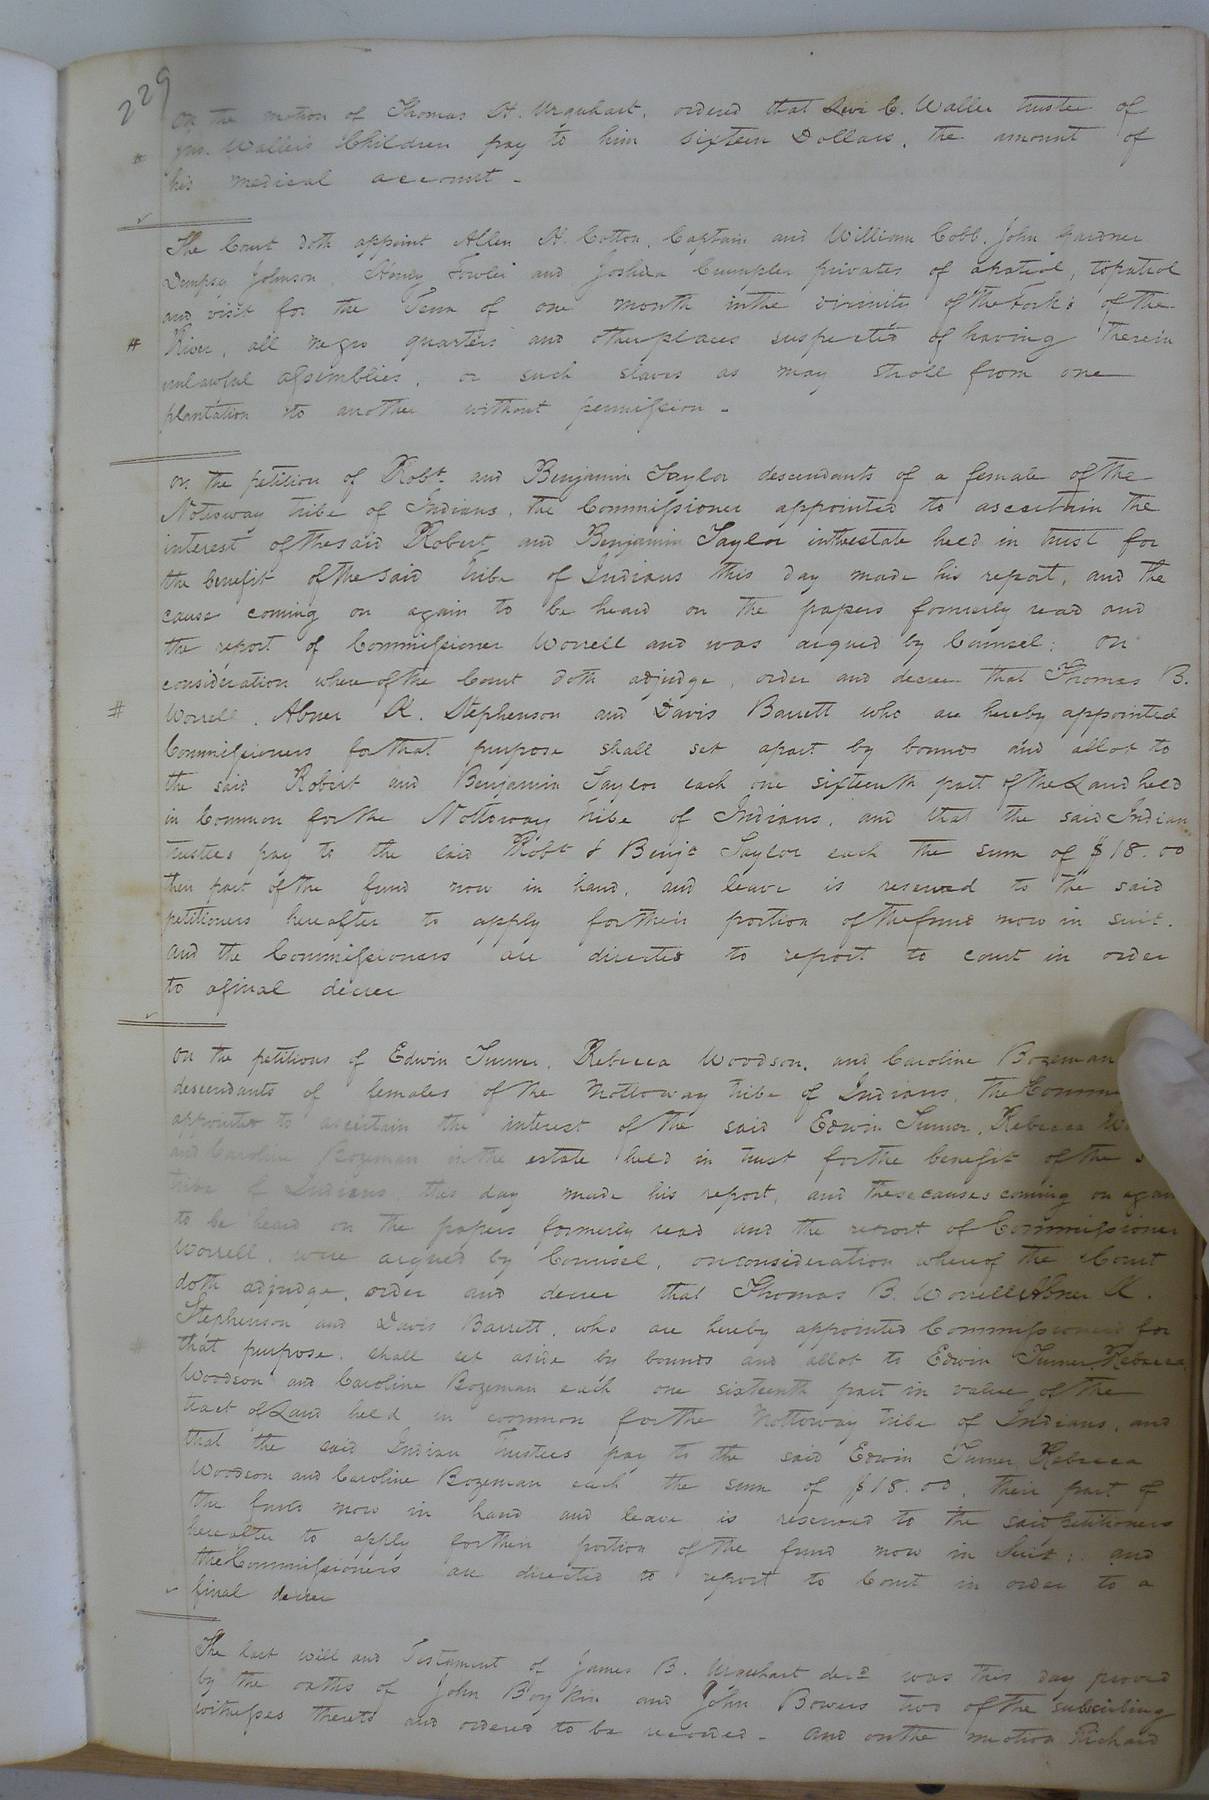 229
On the motion of Thomas H. Urquhart, ordered that Levi C. Waller trustee of
Jno. Waller's Children pay to him sixteen Dollars, the amount of
his medical account -
The Court doth appoint Allen H. Cotton, Captain and William Cobb, John Gardner
Dempsy Johnson, Henry Fowler and Joshua Crumpler privates of a patrol, to patrol
and visit for the Term of one month in the vicinity of the Forks of the
# River, all negro quarters and other places suspected of having therein
unlawful assemblies, or such slaves as may stroll from one
plantation to another without permission -
On the petition of Robt. and Benjamin Taylor descendants of a female of the
Notoway tribe of Indians, the Commissioner appointed to ascertain the
interest of the said Robert and Benjamin Taylor in the estate held in trust for
the benefit of the said tribe of Indians this day made his report, and the
cause coming on again to be heard on the papers formerly read and
the report of Commissioner Worrell and was argued by Counsel; On
consideration whereof the Court doth adjudge, order and decree that Thomas B.
# Worrell, Abner K. Stephenson and Davis Barrett who are hereby appointed
Commissioners for that purpose shall set apart by bounds and allot to
the said Robert and Benjamin Taylor each one sixteenth part of the Land held
in Common for the Nottoway tribe of Indians, and that the said Indian
trustees pay to the said Robt & Benja Taylor each the sum of $18.00
their part of the fund now in hand, and leave is reserved to the said
petitioners hereafter to apply for their portion of the fund now in suit.
And the Commissioners are directed to report to court in order
to a final decree
On the petitions of Edwin Turner, Rebecca Woodson, and Caroline Bozeman
descendants of females of the Nottoway tribe of Indians, the Comm
appointed to ascertain the interest of the said Edwin Turner, Rebecca W
and Caroline Bozeman in the estate held in trust for the benefit of the s
tribe of Indians, this day made his report, and these causes coming on again
to be heard on the papers formerly read and the report of Commissioner
Worrell, were argued by Counsel, on consideration whereof the Court
doth adjudge, order and decree that Thomas B. Worrell Abner K.
Stephenson and Davis Barrett, who are hereby appointed Commissioners for
# that purpose, shall set aside by bounds and allot to Edwin Turner, Rebecca
Woodson and Caroline Bozeman each one sixteenth part in value of the
tract of Land held in common for the Nottoway tribe of Indians, and
that the said Indian Trustees pay to the said Edwin Turner, Rebecca
Woodson and Caroline Bozeman each the sum of $18.00, their part of
the funds now in hand and leave is reserved to the said petitioners
hereafter to apply for their portion of the fund now in Suit; and
the Commissioners are directed to report to Court in order to a
final decree
The last will and Testament of James B. Urquhart decd was this day proved
by the oaths of John Boykin and John Bowers two of the subscribing
witnesses thereto and ordered to be recorded - And on the motion Richard